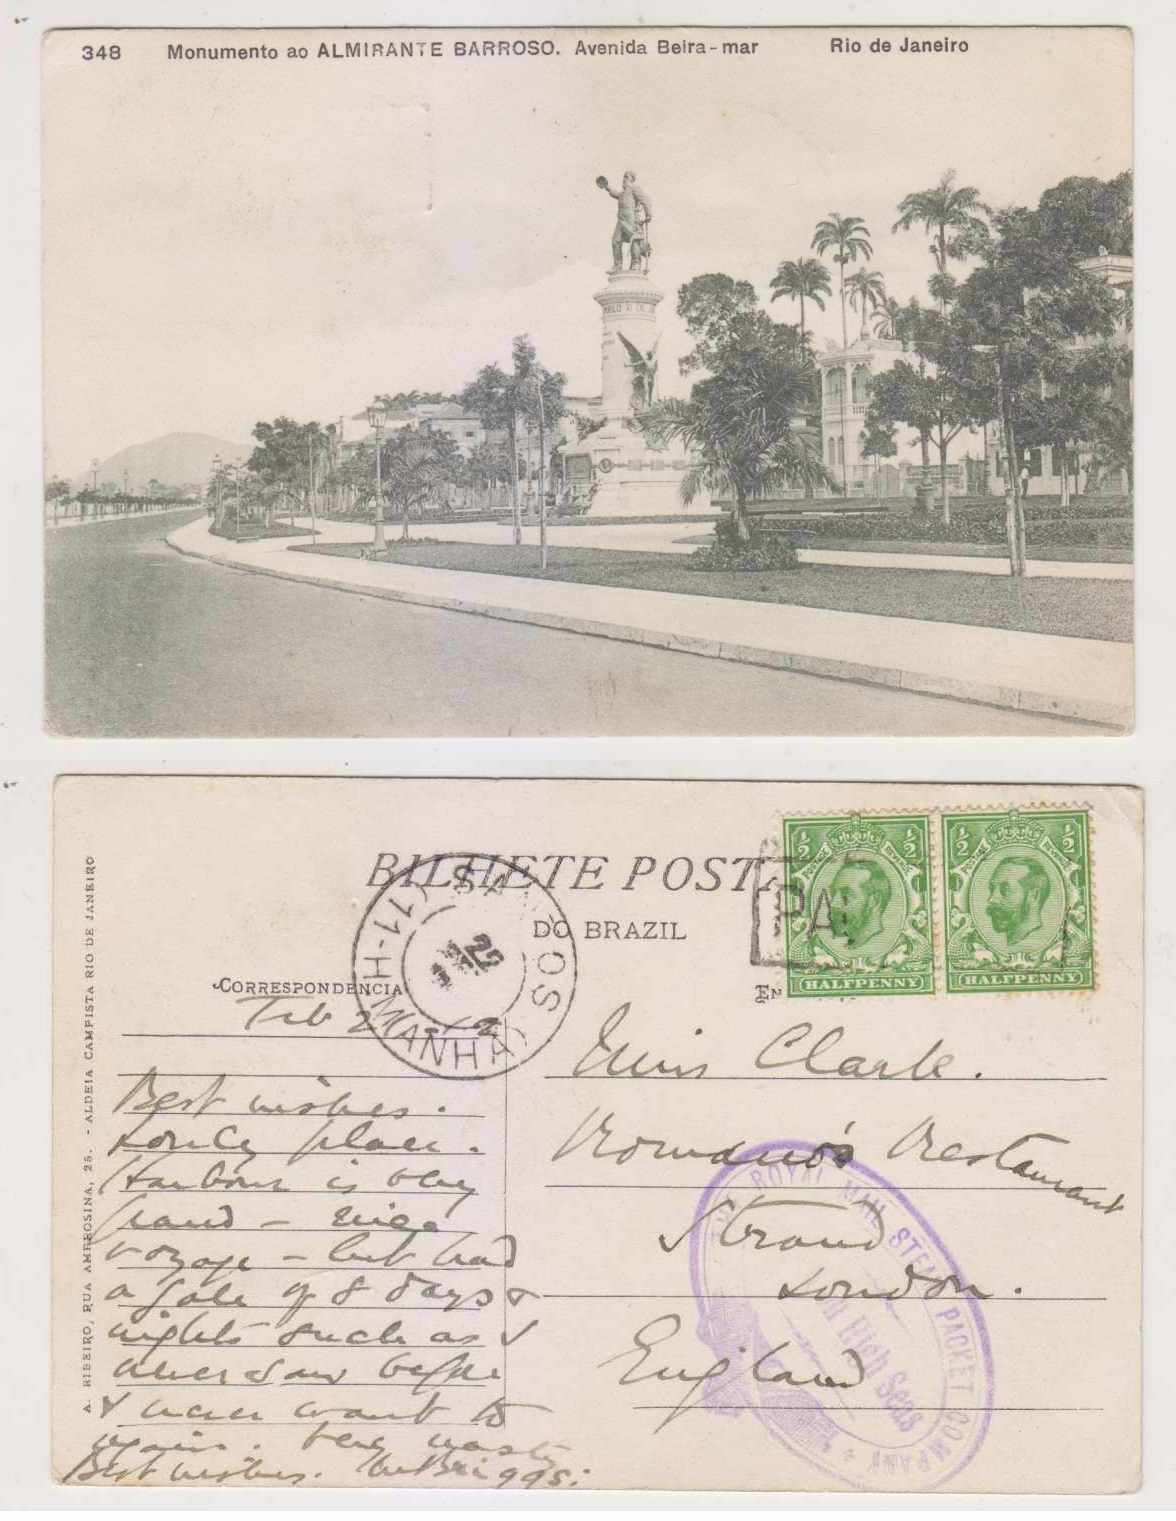 348 Monumento ao ALMIRANTE BARROSO. Avenida Beira-mar Rio de Janeiro
BILHETE POSTA
DO BRAZIL
PAI
1/2 POSTAGE REVENUE 1/2
HALFPENNY
1/2 POSTAGE REVENUE 1/2
HALFPENNY
SANTOS
(11-H MANHÃ)
22
2
CORRESPONDENCIA
Feb 2
Best wishes.
Lovely place.
Harbour is very
grand - nice
voyage - but had
a gale of 8 days &
nights such as I
never saw before
& never want to
again. very nasty
Best wishes. Briggs.
Miss Clarke.
Romano's Restaurant
Strand
London.
England
THE ROYAL MAIL STEAM PACKET COMPANY
On High Seas
A. RIBEIRO, RUA AMBROSINA, 25. - ALDEIA CAMPISTA RIO DE JANEIRO